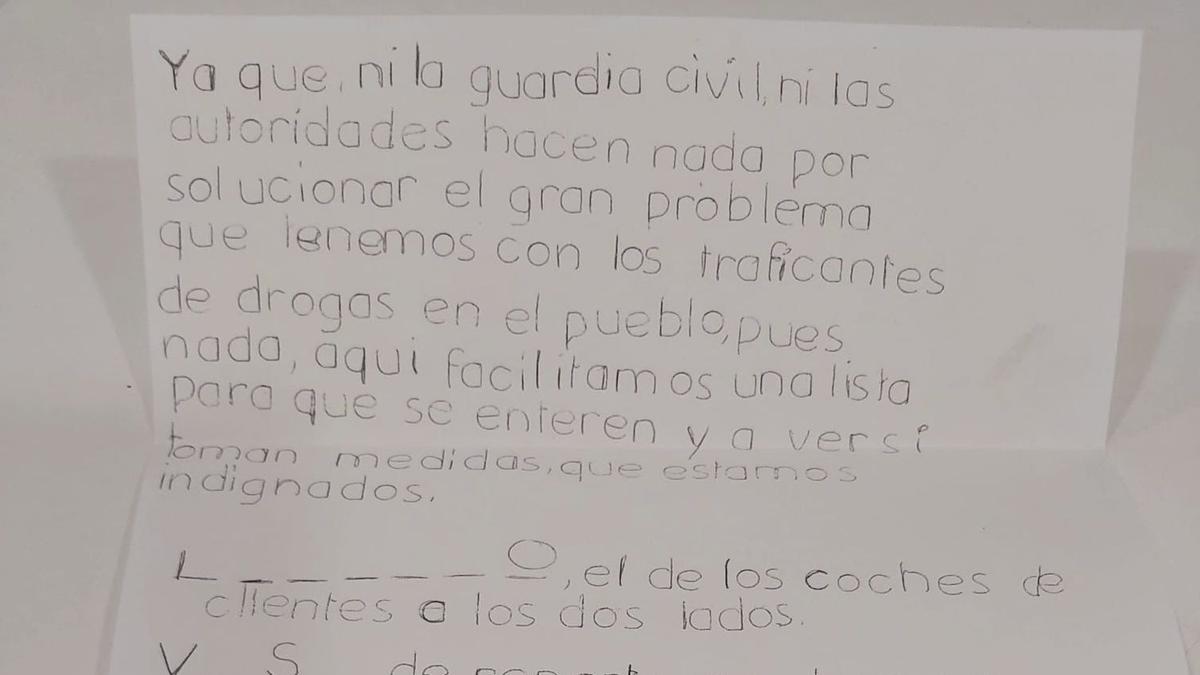 Ya que, ni la guardia civil, ni las
autoridades hacen nada por
solucionar el gran problema
que tenemos con los traficantes
de drogas en el pueblo, pues
nada, aqui facilitamos una lista
para que se enteren y a ver si
toman medidas, que estamos
indignados.
L _ _ _ _ _ O, el de los coches de
clientes a los dos lados.
V S de